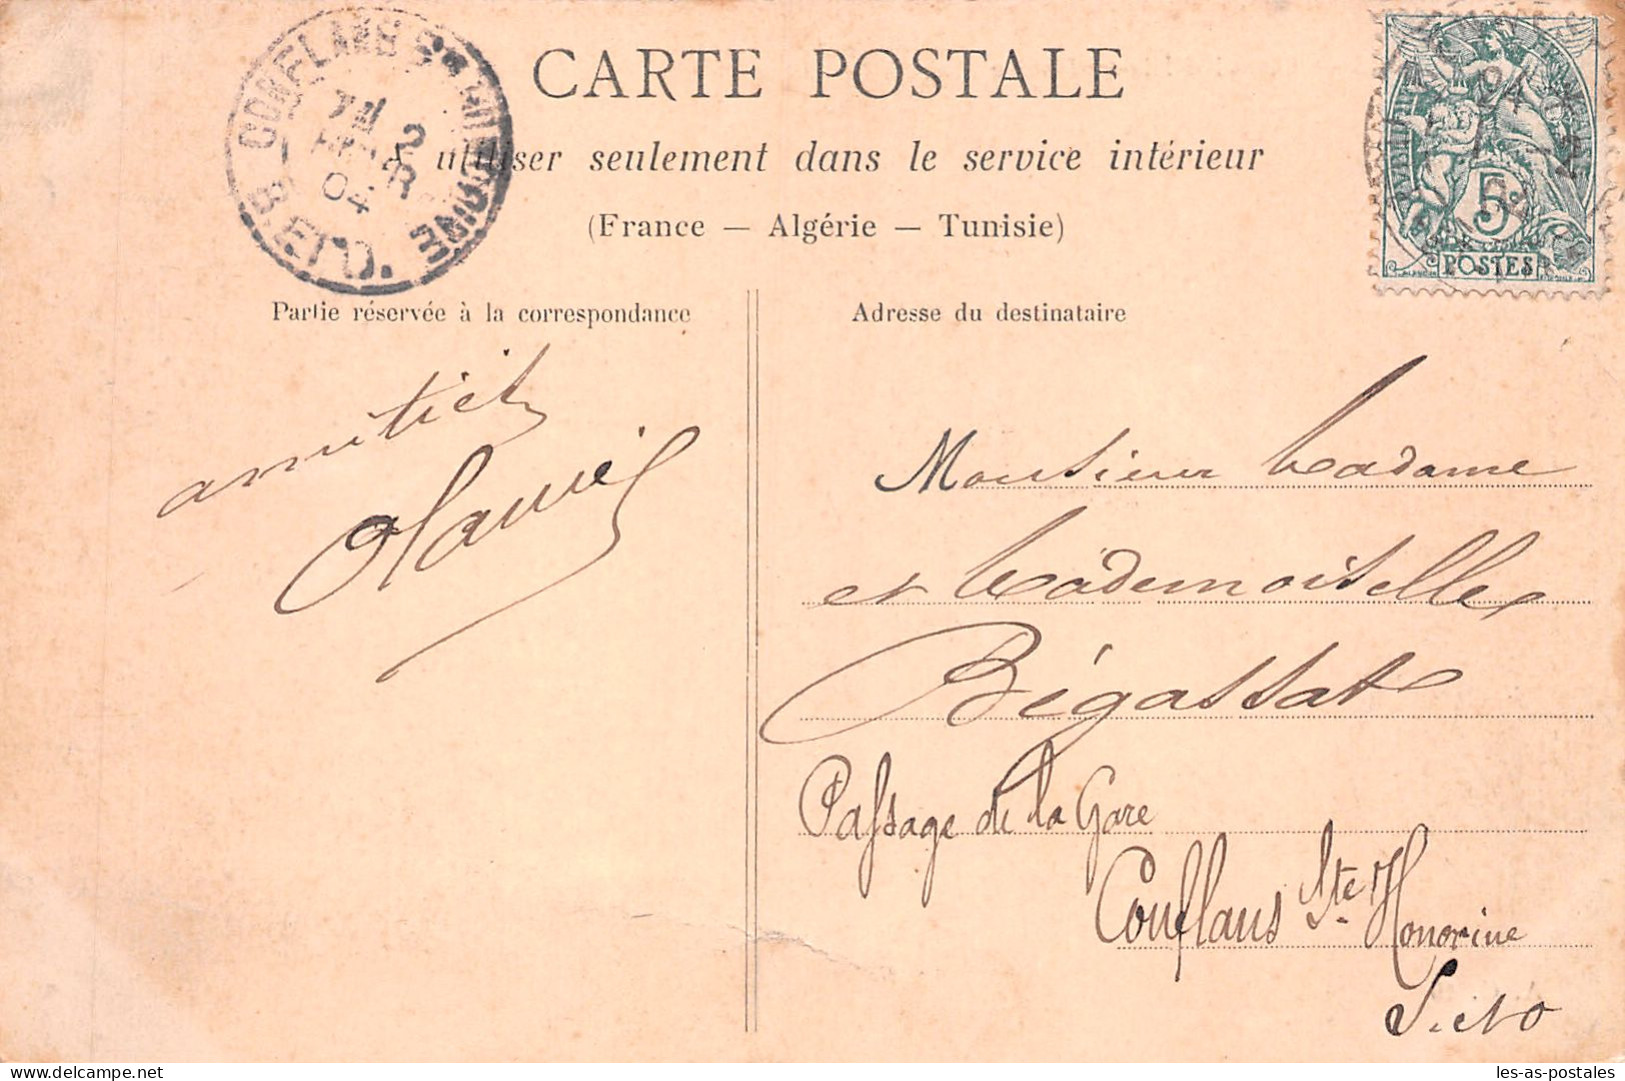 CARTE POSTALE
A utiliser seulement dans le service intérieur
(France — Algérie — Tunisie)
CONFLANS Ste HONORINE
S. ET O.
2
04
5
POSTES
Partie réservée à la correspondance
amitiés
Adresse du destinataire
Monsieur Madame
et Mademoiselle
Bégassat
Passage de la Gare
Conflans Ste Honorine
S. et O
les-as-postales